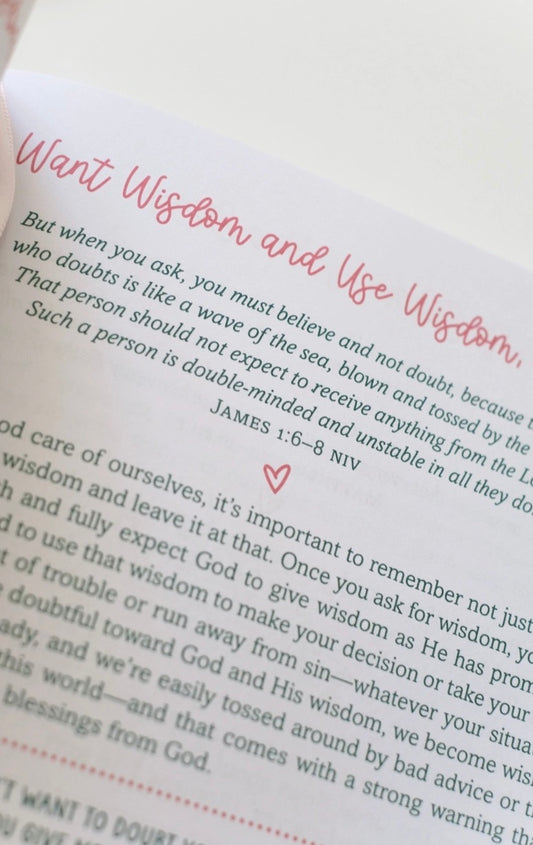 Want Wisdom and Use Wisdom,
But when you ask, you must believe and not doubt, because
who doubts is like a wave of the sea, blown and tossed by the
That person should not expect to receive anything from the
Such a person is double-minded and unstable in all they do
JAMES 1:6–8 NIV
care of ourselves, it's important to remember not just
wisdom and leave it at that. Once you ask for wisdom,
and fully expect God to give wisdom as He has
to use that wisdom to make your decision or take your
of trouble or run away from sin—whatever your
doubtful toward God and His wisdom, we become
and we're easily tossed around by bad advice or
this world—and that comes with a strong warning
blessings from God.
WANT TO DOUBT
GIVE